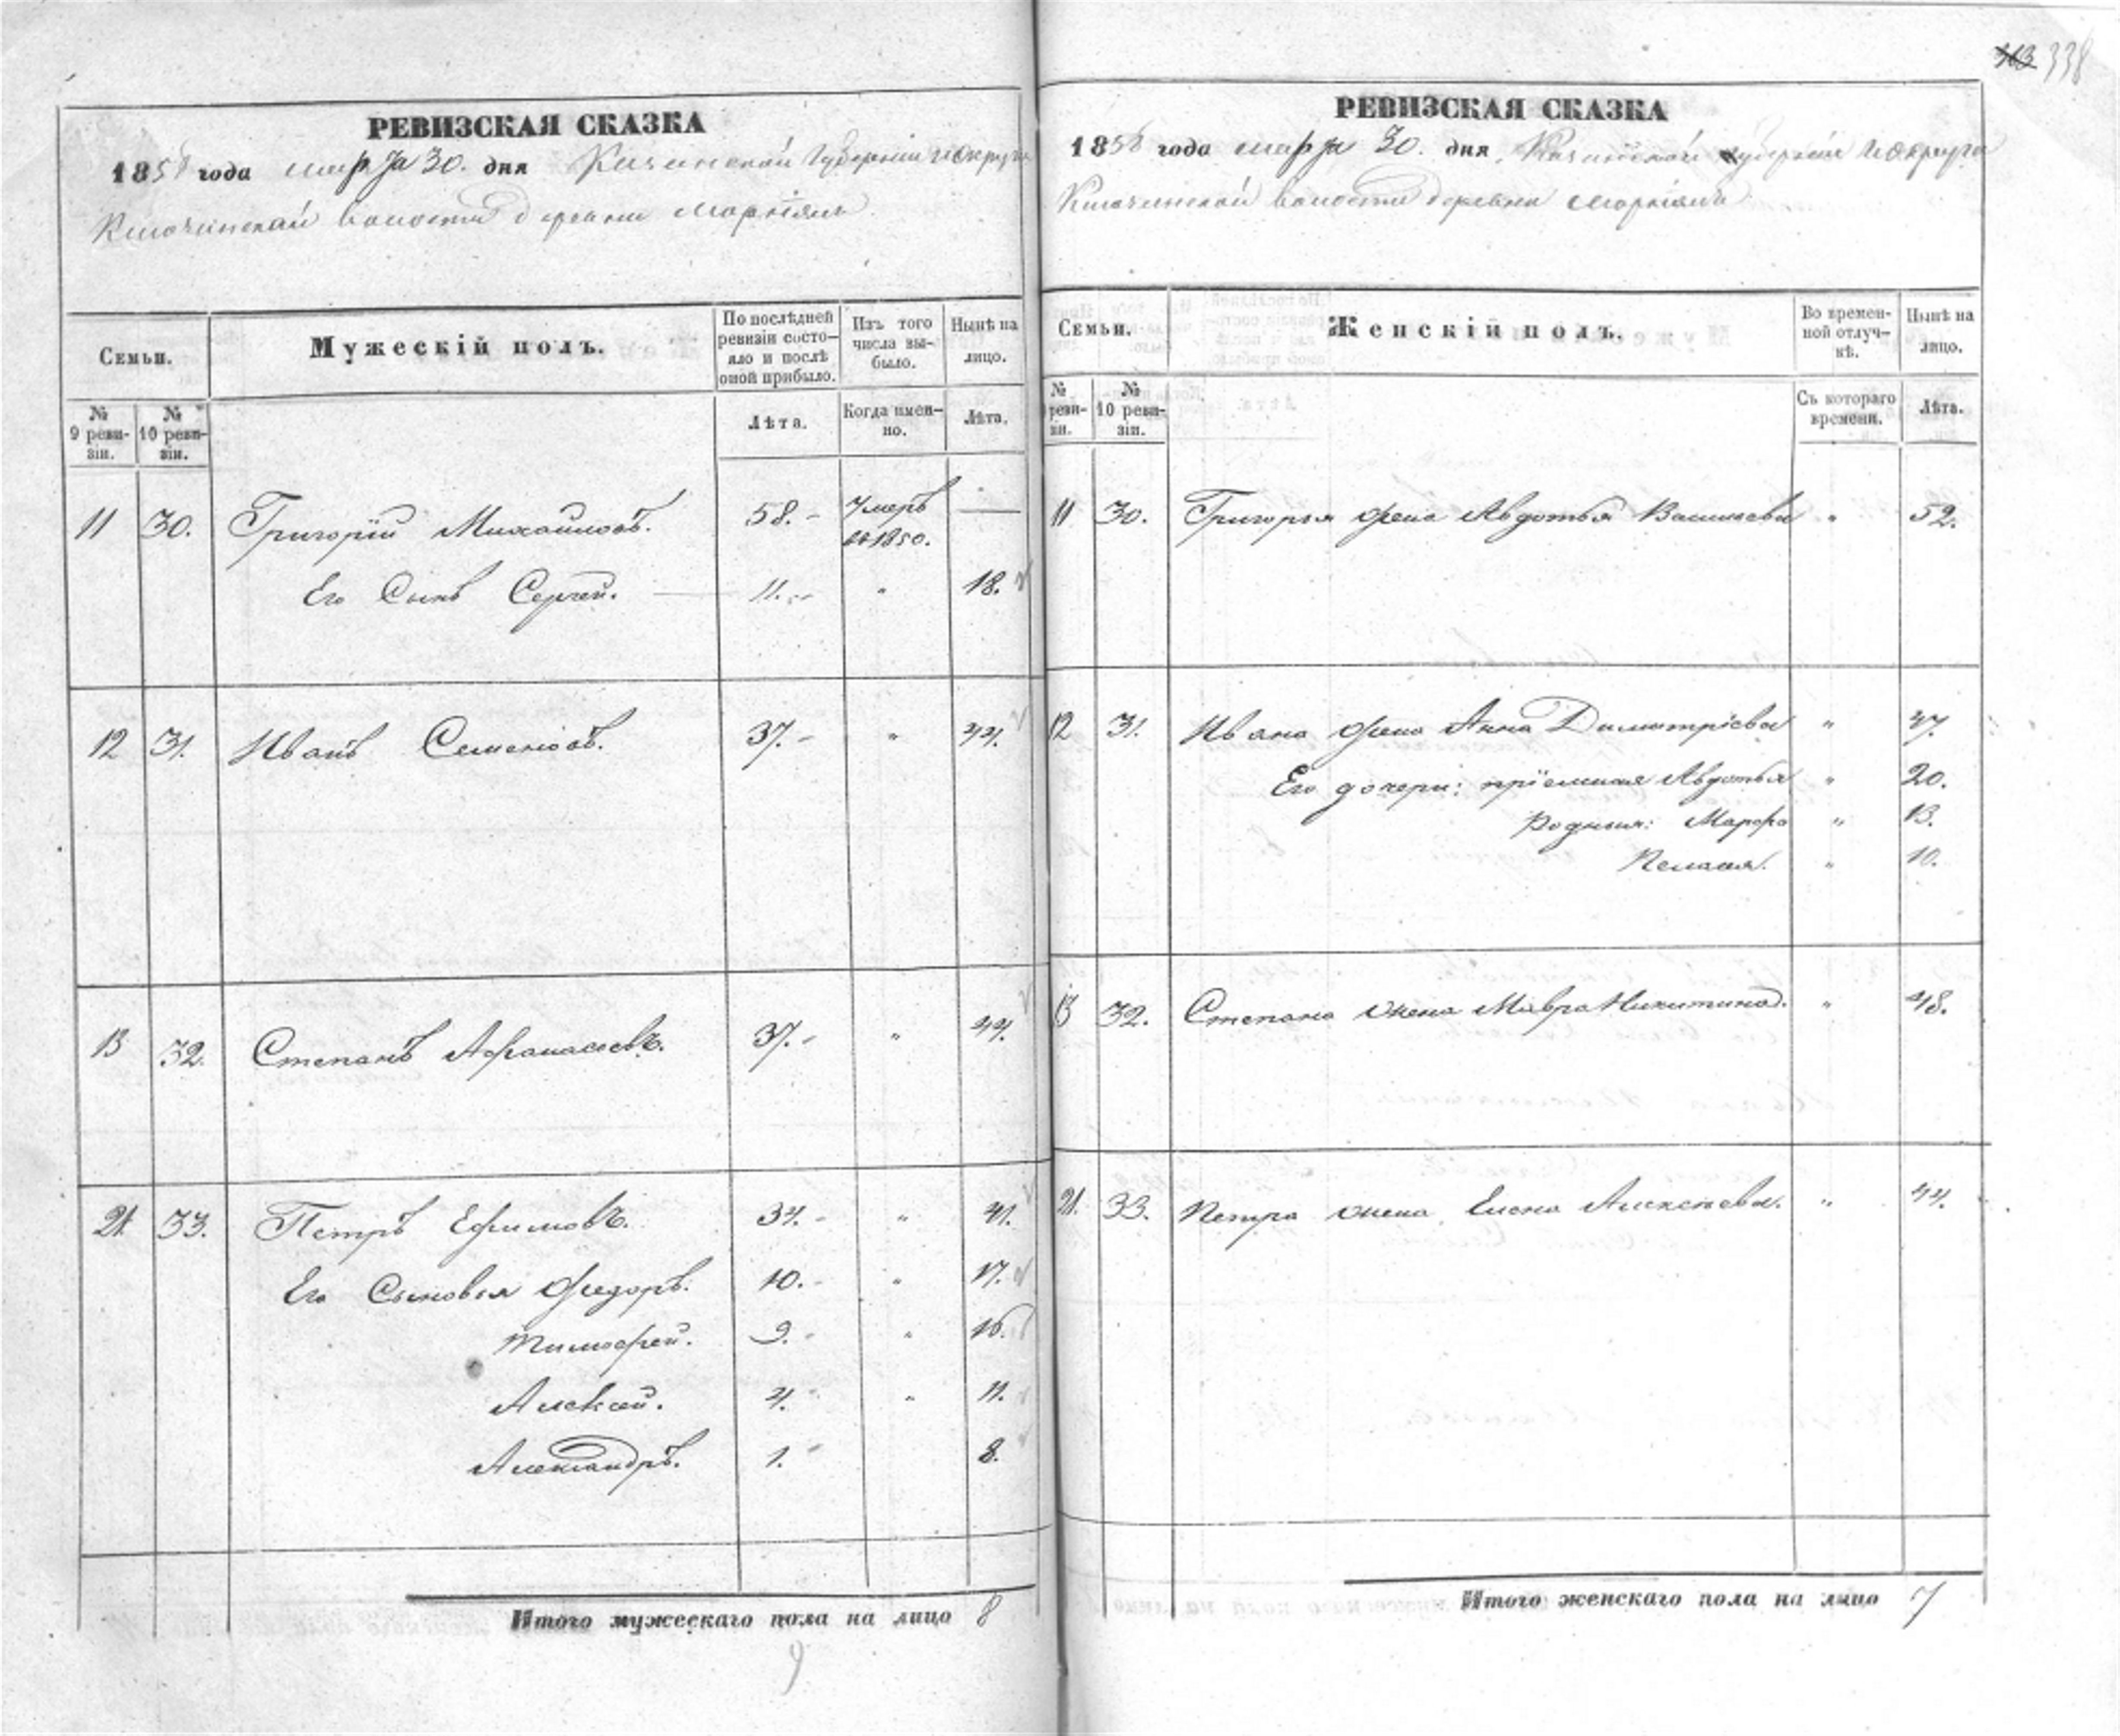 113 338
РЕВИЗСКАЯ СКАЗКА
1858 года марта 30. дня Казанской Губернiи и округа
Ключинской волости деревни
Семьи.
Мужескiй полъ.
По послѣдней ревизiи состо-
яло и послѣ
оной прибыло.
Изъ того
числа вы-
было.
Нынѣ на
лицо.
№
9 реви-
зiи.
№
10 реви-
зiи.
Лѣта.
Когда имен-
но.
Лѣта.
11 30. Григорiй Михайловъ. 58. Умеръ
въ 1850. —
Его Сынъ Сергей. 11. " 18.
12 31. Иванъ Семеновъ. 37. " 44.
13 32. Степанъ Афанасьевъ. 37. " 44.
21 33. Петръ Ефимовъ. 34. " 41.
Его Сыновья Федоръ. 10. " 17.
Тимофей. 9. " 16.
Алексей. 4. " 11.
Александръ. 1. 8.
Итого мужескаго пола на лицо 8
9
РЕВИЗСКАЯ СКАЗКА
1858 года марта 30. дня, Казанской губернiи и округа
Ключинской волости деревни
Семьи.
Женскiй полъ.
Во времен-
ной отлуч-
кѣ.
Нынѣ на
лицо.
№
реви-
зiи.
№
10 реви-
зiи.
Съ котораго
времени.
Лѣта.
11 30. Григорья жена Авдотья Васильева " 52.
12 31. Ивана жена Анна Димитрiева " 47.
Его дочери: прiемная Авдотья " 20.
Родныя: Марфа " 13.
Пелагея. " 10.
13 32. Степана жена Мавра Никитина. " 48.
21. 33. Петра жена Елена Алексѣева. " 44.
Итого женскаго пола на лицо 7